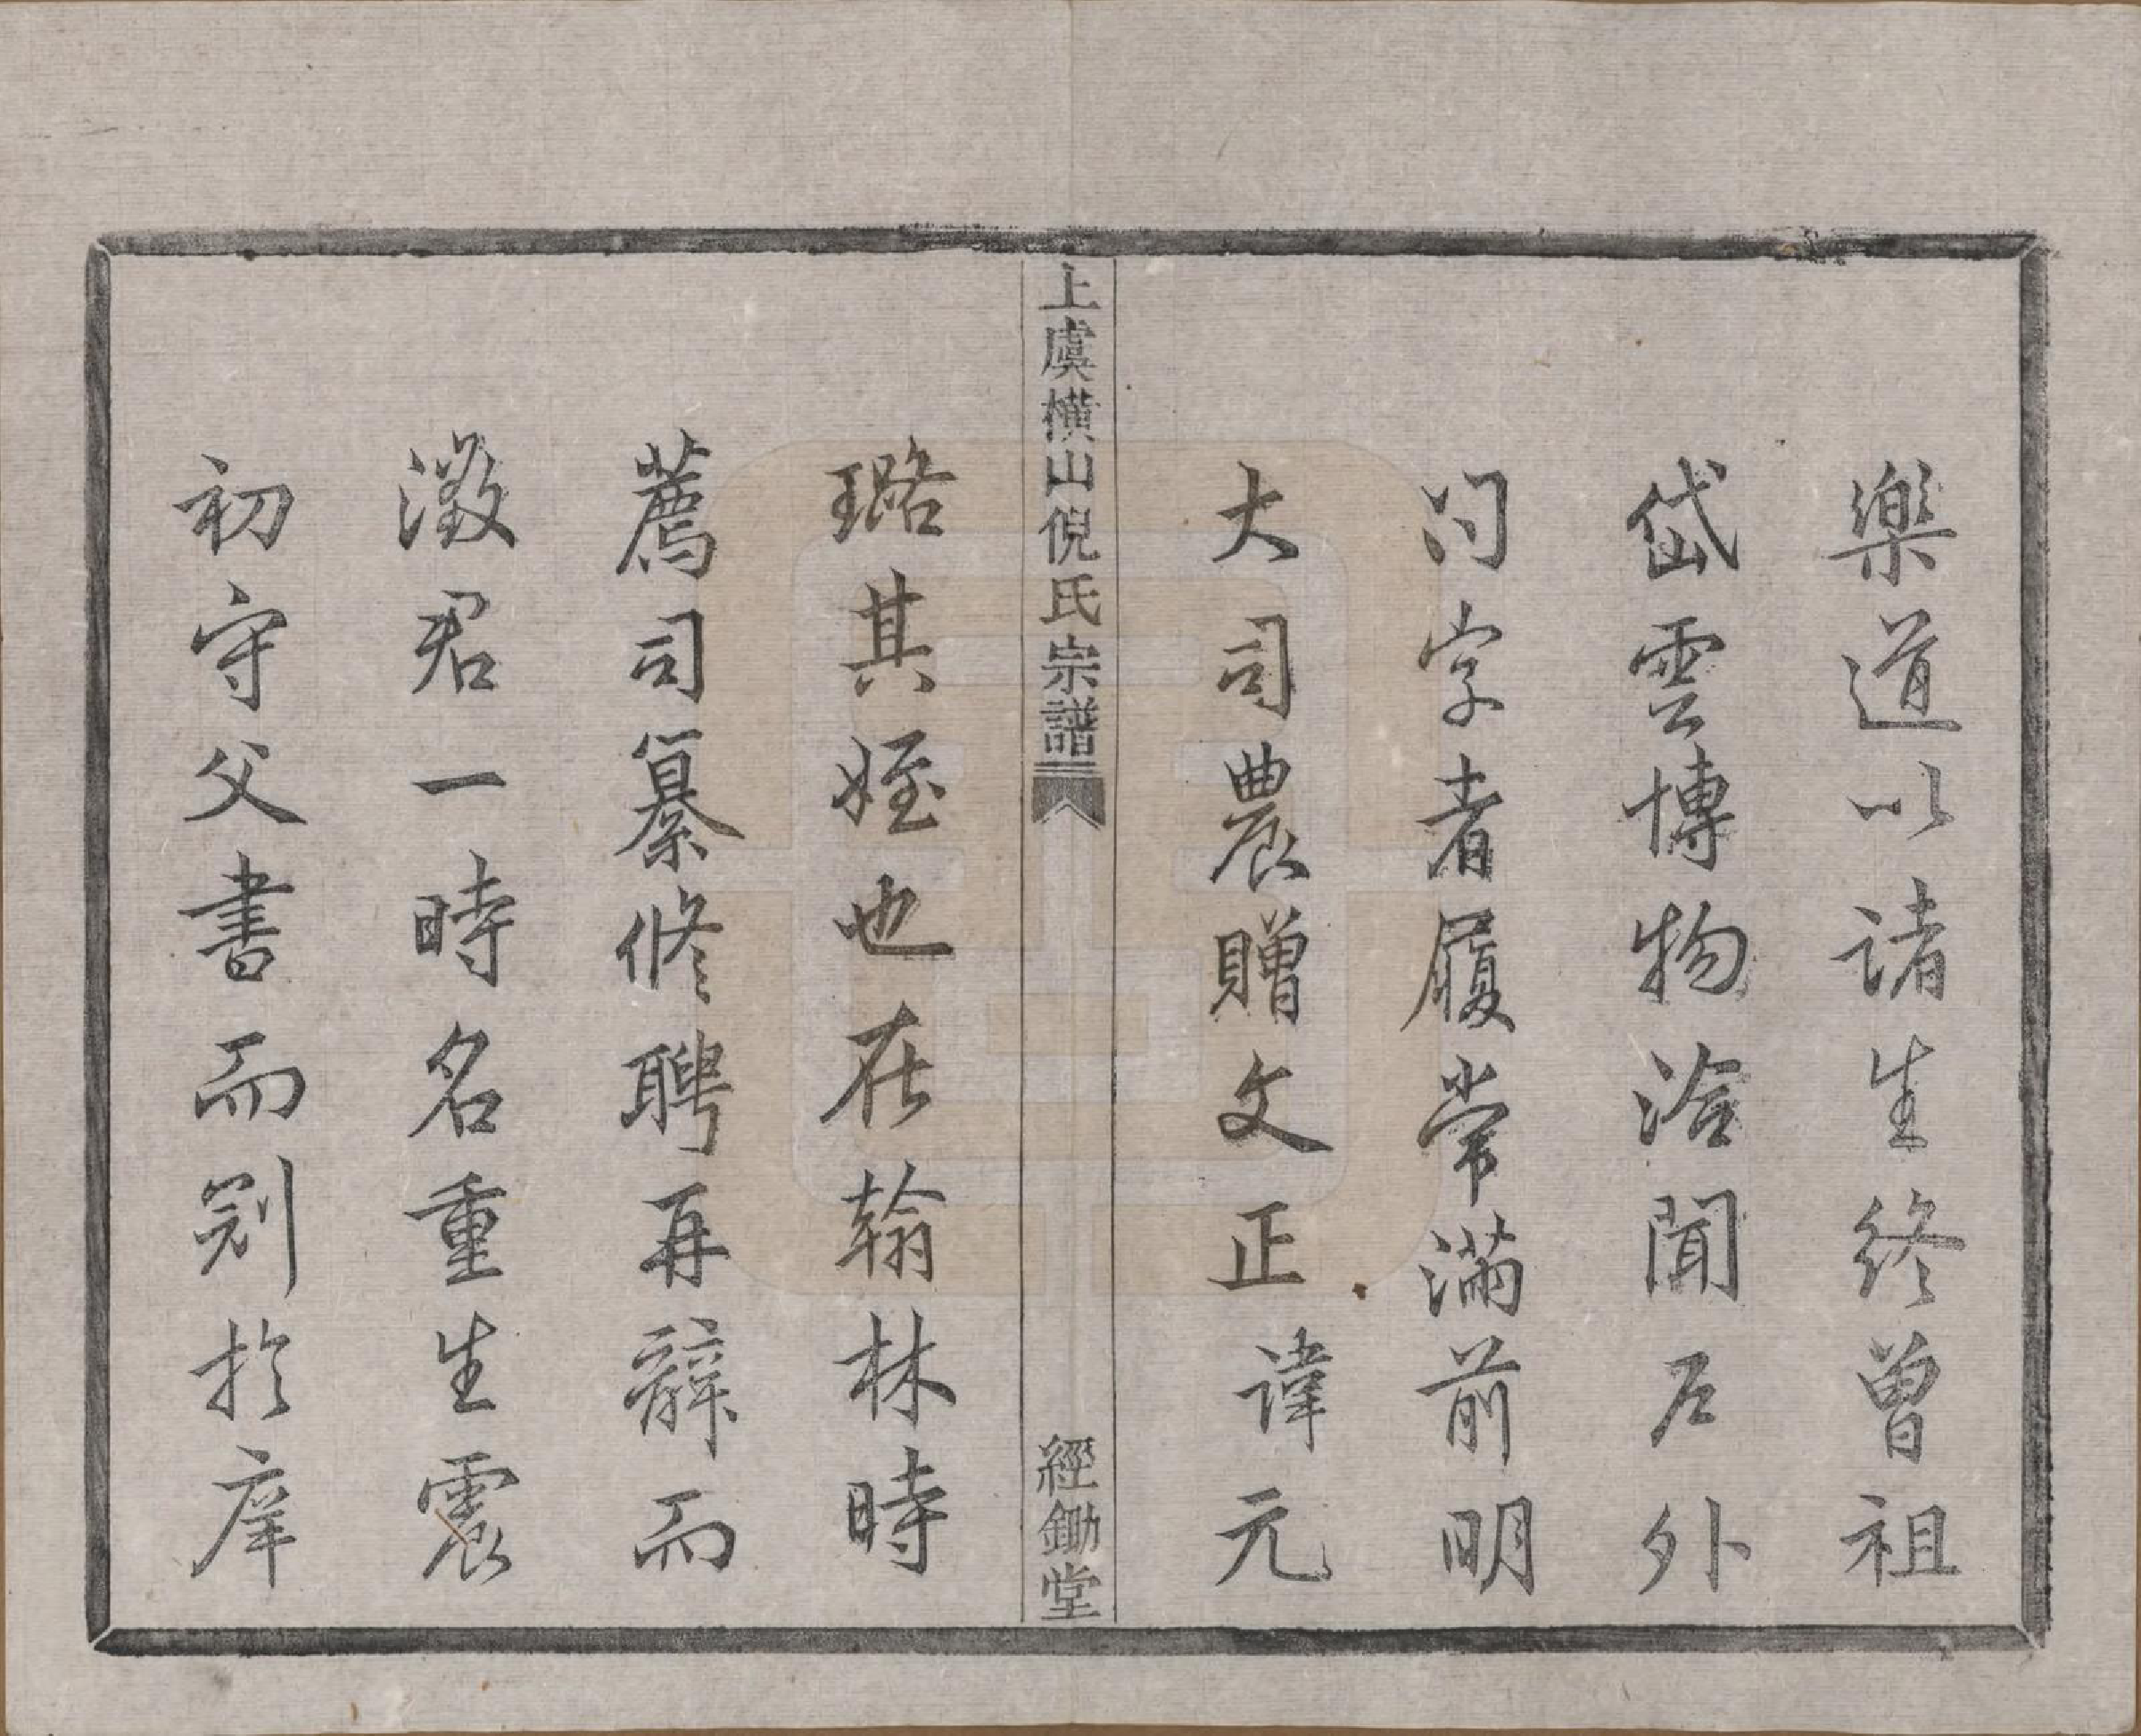 樂道以諸生終曾祖
岱雲博物洽聞戶外
问字者履常滿前明
大司農贈文正諱元
璐其姪也在翰林時
薦司纂修聘再辭而
澂君一時名重生震
初守父書而劌於庠
上虞橫山倪氏宗譜
經鋤堂